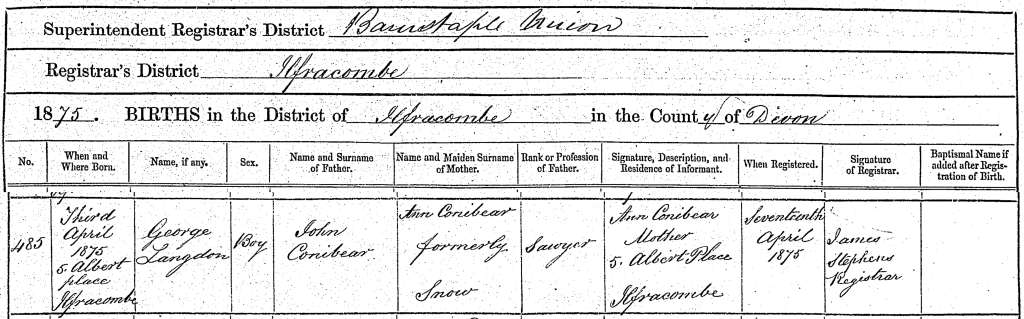 Superintendent Registrar's District Barnstaple Union
Registrar's District Ilfracombe
1875. BIRTHS in the District of Ilfracombe in the County of Devon
No. When and Where Born. Name, if any. Sex. Name and Surname of Father. Name and Maiden Surname of Mother. Rank or Profession of Father. Signature, Description, and Residence of Informant. When Registered. Signature of Registrar. Baptismal Name if added after Registration of Birth.
485
Third
April
1875
5. Albert
place
Ilfracombe
George
Langdon
Boy
John
Conibear
Ann Conibear
formerly
Snow
Sawyer
Ann Conibear
Mother
5. Albert Place
Ilfracombe
Seventeenth
April
1875
James
Stephens
Registrar